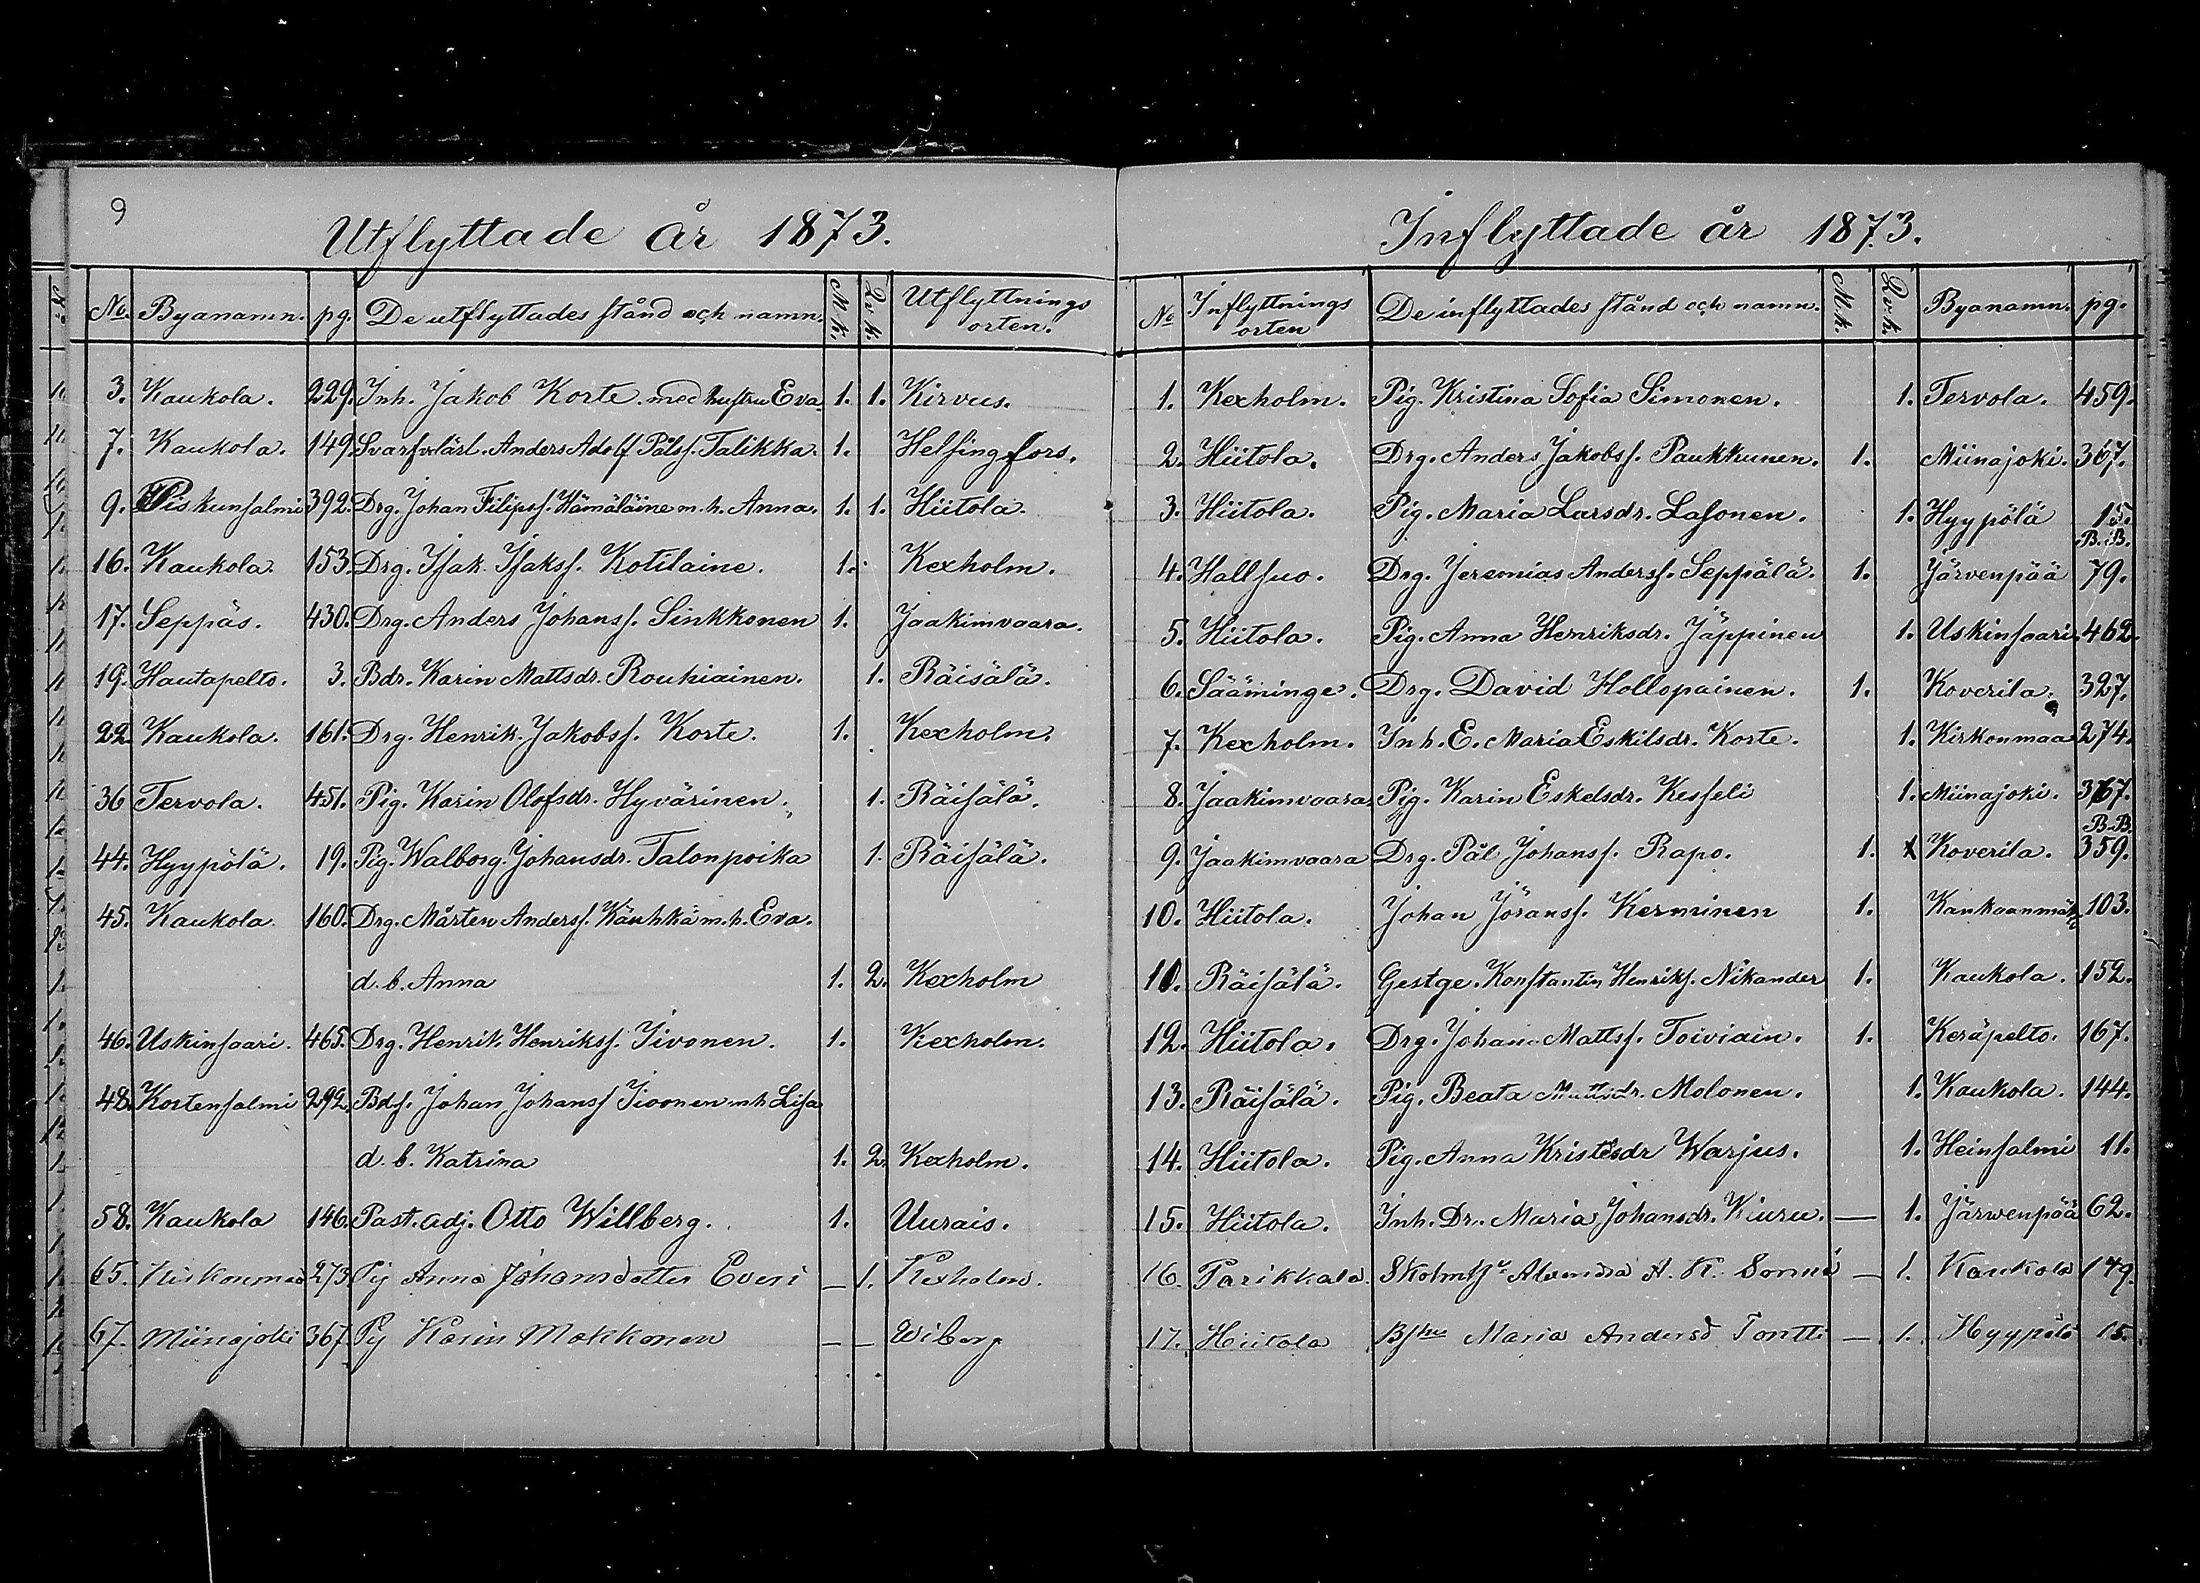 9
Utflyttade år 1873.
No. Byanamn. pg. De utflyttades stånd och namn. M.k. Qv.k. Utflyttnings orten.
3. Kaukola. 229. Inh. Jakob Korte med hustru Eva. 1. 1. Kirvus.
7. Kaukola. 149. Svarfvelärl. Anders Adolf Pålsf. Talikka. 1. Helsingfors.
9. Piskunsalmi 392. Drg. Johan Filipsf. Hämäläine m. h. Anna. 1. 1. Hiitola.
16. Kaukola. 153. Drg. Isak Isaksf. Kotilaine. 1. Kexholm.
17. Seppäs. 430. Drg. Anders Johansf. Sinkkonen 1. Jaakimvaara.
19. Hautapelto. 3. Bdr. Karin Mattsdr. Rouhiainen. 1. Räisälä.
22. Kaukola. 161. Drg. Henrik Jakobsf. Korte. 1. Kexholm.
36 Tervola. 451. Pig. Karin Olofsdr. Hyvärinen. 1. Räisälä.
44. Hyypölä. 19. Pig. Walborg Johansdr. Talonpoika 1. Räisälä.
45. Kaukola. 160. Drg. Mårten Andersf. Käuhkä m. h. Eva.
d. b. Anna 1. 2. Kexholm
46. Uskinsaari. 465. Drg. Henrik Henriksf. Iivonen. 1. Kexholm.
48. Kortensalmi 292. Bdf. Johan Johansf Iivonen m h Lisa
d. b. Katrina 1. 2. Kexholm.
58. Kaukola 146. Past. adj. Otto Willberg. 1. Uurais.
65. Kirkonmaa 273 Pig Anna Johansdotter Everi — 1. Kexholm.
67. Miinajoki 367 Pig Karin Mokkonen — — Wiborg
Inflyttade år 1873.
No Inflyttnings orten De inflyttades stånd och namn. M.k. Qv.k. Byanamn. pg.
1. Kexholm. Pig. Kristina Sofia Simonen. 1. Tervola. 459.
2. Hiitola. Drg. Anders Jakobsf. Paukkunen. 1. Miinajoki. 367.
3. Hiitola. Pig. Maria Larsdr. Lasonen. 1. Hyypölä 15.
B. B.
4. Hallsuo. Drg. Jeremias Andersf. Seppälä. 1. Järvenpää 79.
5. Hiitola. Pig. Anna Henriksdr. Jäppinen 1. Uskinsaari. 462.
6. Sääminge. Drg. David Hollopainen. 1. Koverila. 327.
7. Kexholm. Inh. E. Maria Eskilsdr. Korte. 1. Kirkonmaa 274.
8. Jaakimvaara. Pig. Karin Eskelsdr. Kesseli 1. Miinajoki. 367.
B. B.
9. Jaakimvaara Drg. Pål Johansf. Rapo. 1. Koverila. 359.
10. Hiitola. Johan Jöransf. Kerminen 1. Kankaanmäki 103.
11. Räisälä. Gestge. Konstantin Henriksf. Nikander 1. Kaukola. 152.
12. Hiitola. Drg. Johan Mattsf. Toiviain. 1. Keräpelto. 167.
13. Räisälä. Pig. Beata Mattsdr. Molonen. 1. Kaukola. 144.
14. Hiitola. Pig. Anna Kristsdr Warjus. 1. Heinsalmi 11.
15. Hiitola. Inh. Dr. Maria Johansdr. Kiuru. — 1. Järwenpää 62.
16. Parikkala. A. K. — 1. Kaukola 149.
17. Hiitola Maria Andersd Tontti — 1. Hyypölä 15.